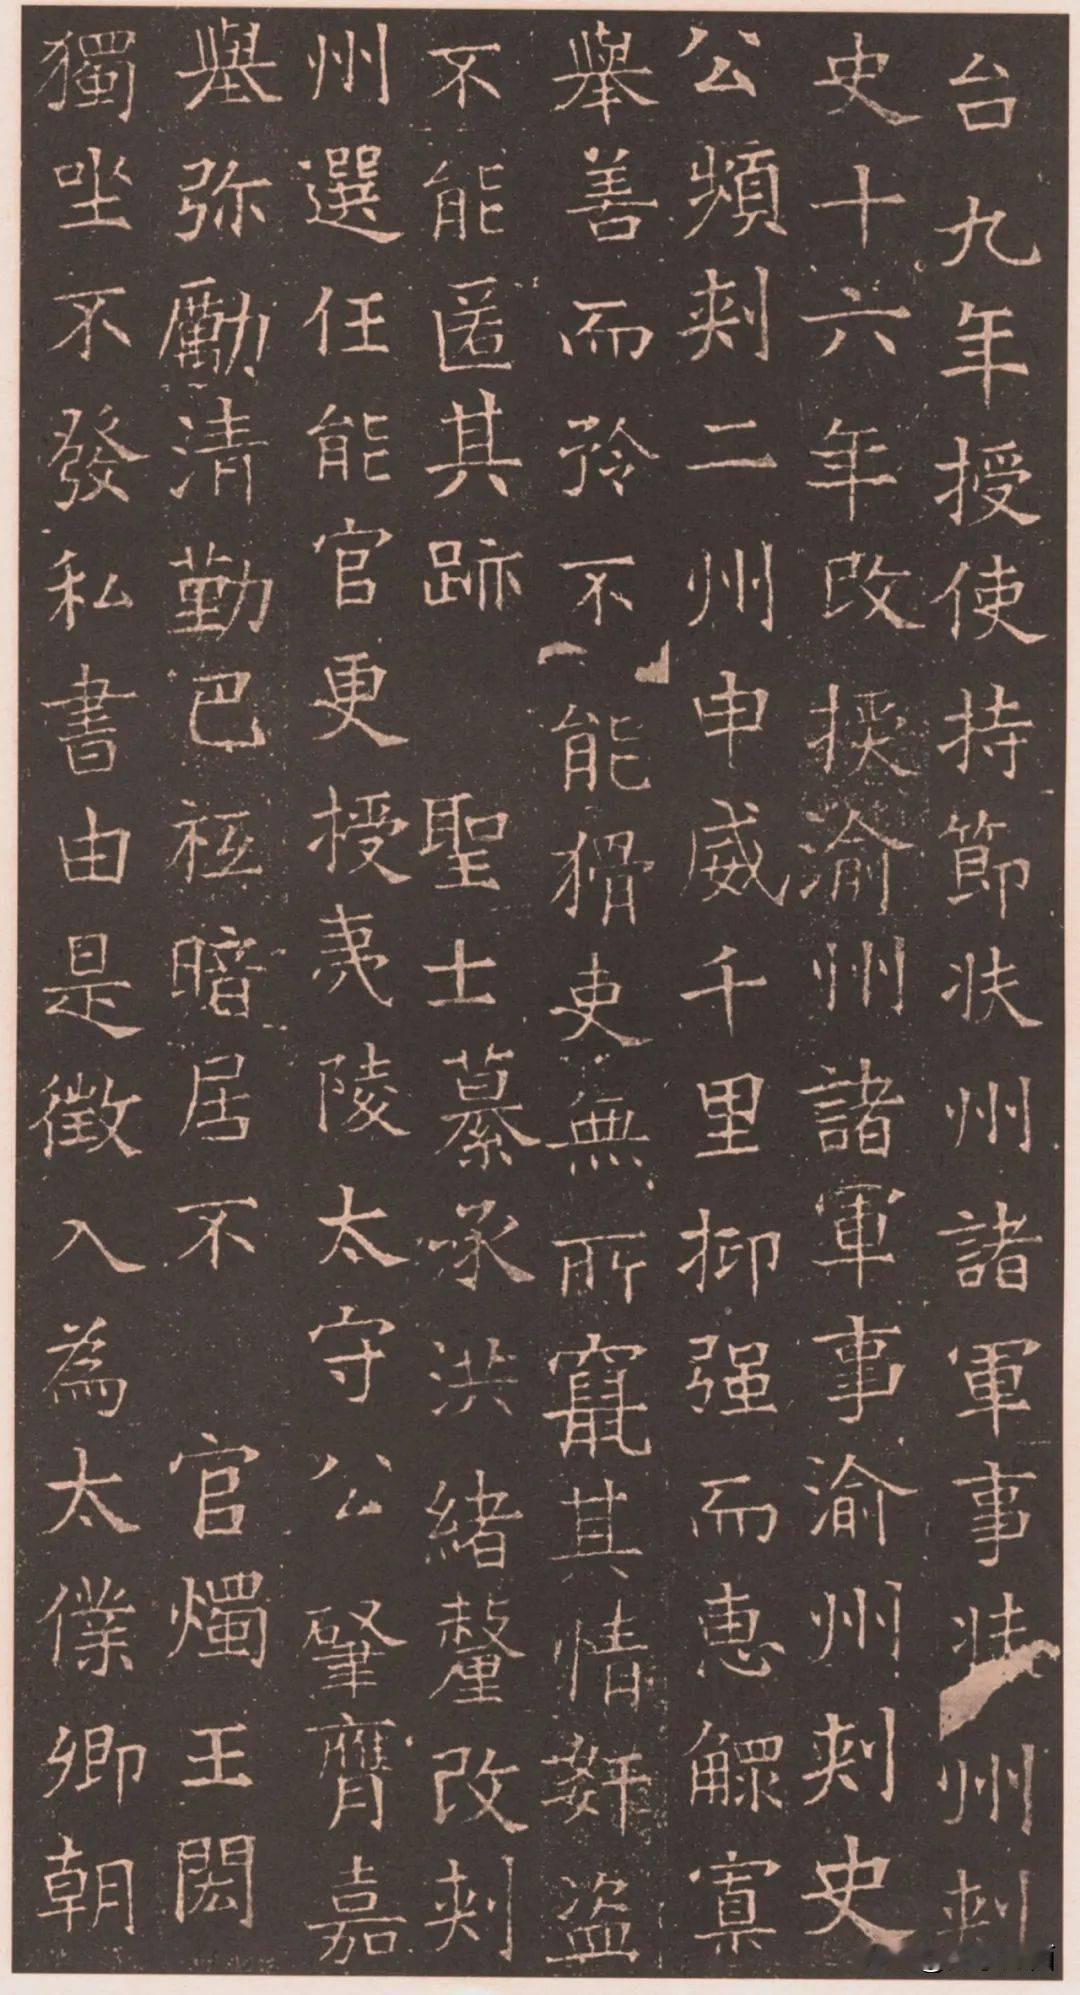 台九年授使持節狀州諸軍事狀州刺
史十六年改授渝州諸軍事渝州刺史
公頻刺二州申威千里抑强而惠鰥寡
舉善而矜不能猾吏無所竄其情姧盜
不能匿其跡 聖士纂承洪緒釐改刺
州選任能官更授夷陵太守公肇膺嘉
舉弥勵清勤巴祗暗居不 官燭王閎
獨坐不發私書由是徵入為太僕卿朝